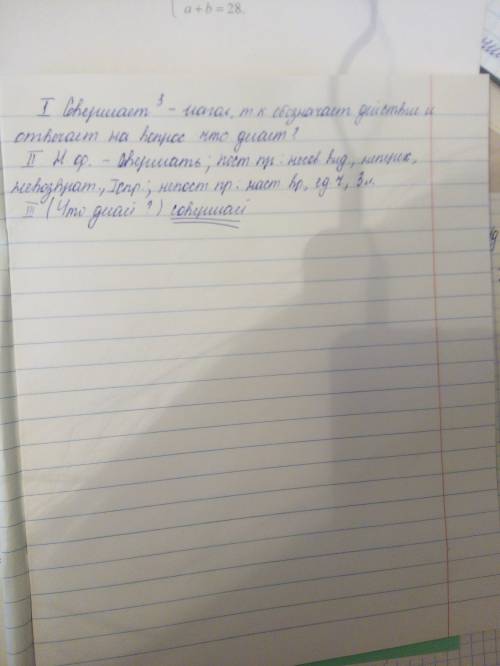 a + b = 28.
I Совершает³ - глагол, т к обозначает действие и
отвечает на вопрос что делает?
II Н ф. - совершать; пост пр: несов вид, неперех,
невозврат., I спр.; непост пр: наст вр., ед ч, 3 л.
III (Что делает?) совершает